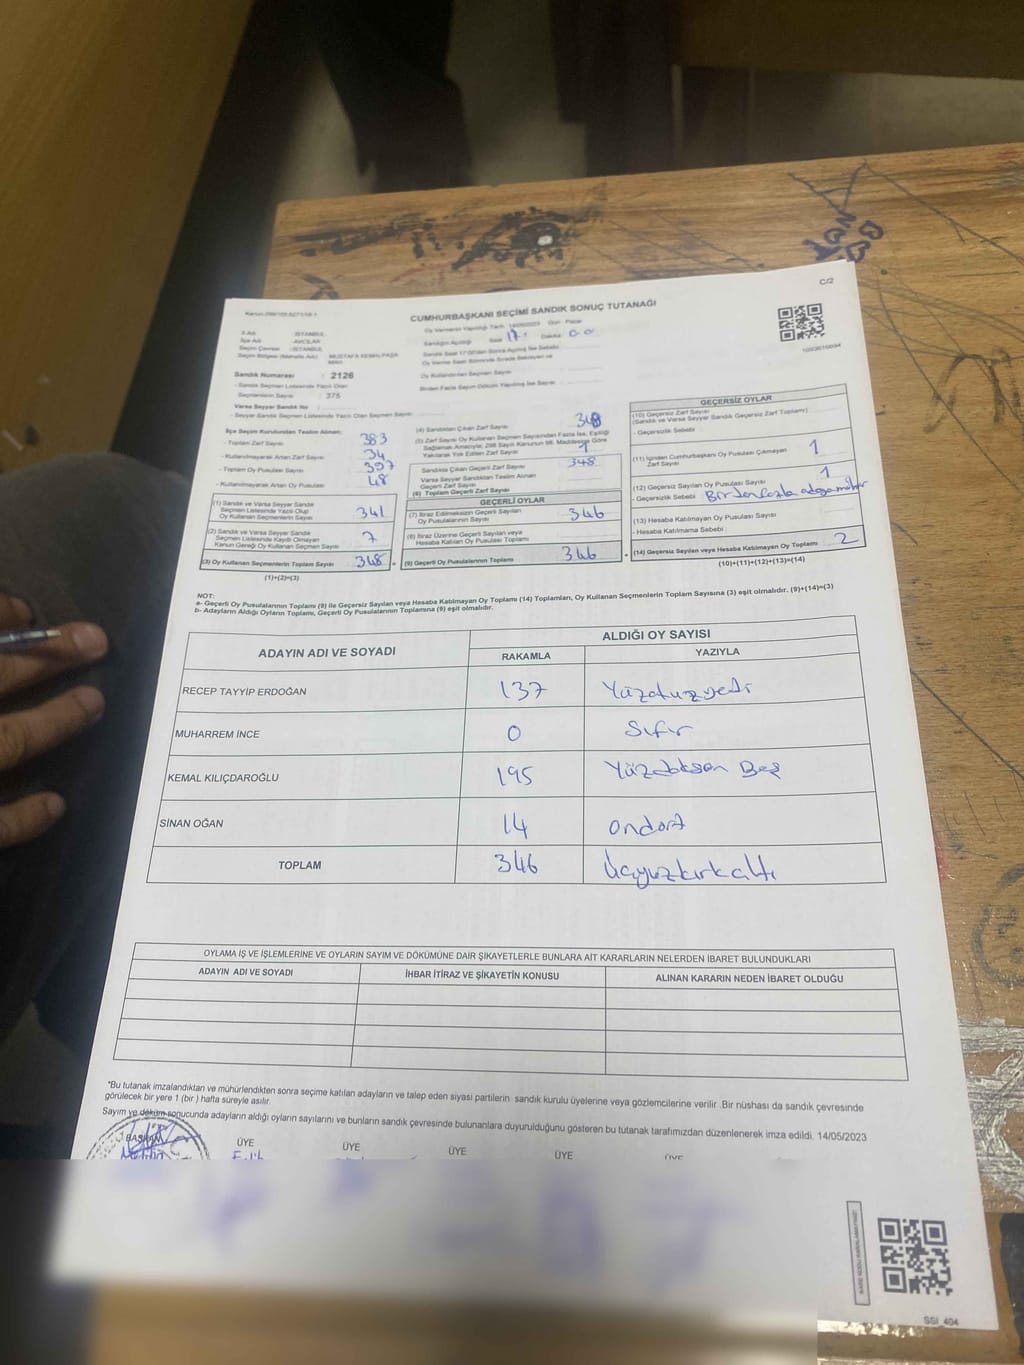 C/2
CUMHURBAŞKANI SEÇİMİ SANDIK SONUÇ TUTANAĞI
İl Adı : İSTANBUL
İlçe Adı : AVCILAR
Seçim Çevresi : İSTANBUL
Seçim Bölgesi (Mahalle Adı) : MUSTAFA KEMAL PAŞA MAH.
Sandık Numarası : 2126
- Sandık Seçmen Listesinde Yazılı Olan
Seçmenlerin Sayısı : 375
Varsa Seyyar Sandık No :
- Seyyar Sandık Seçmen Listesinde Yazılı Olan Seçmen Sayısı
İlçe Seçim Kurulundan Teslim Alınan;
- Toplam Zarf Sayısı 383
- Kullanılmayarak Artan Zarf Sayısı 34
- Toplam Oy Pusulası Sayısı
- Kullanılmayarak Artan Oy Pusulası 48
(1) Sandık ve Varsa Seyyar Sandık
Seçmen Listesinde Yazılı Olup
Oy Kullanan Seçmenlerin Sayısı 341
(2) Sandık ve Varsa Seyyar Sandık
Seçmen Listesinde Kayıtlı Olmayan
Kanun Gereği Oy Kullanan Seçmen Sayısı 7
(3) Oy Kullanan Seçmenlerin Toplam Sayısı 348
(1)+(2)=(3)
Oy Vermenin Yapıldığı Tarih 14/05/2023 Gün Pazar
Sandığın Açıldığı Saat 17 Dakika 00
Sandık Saat 17:00'den Sonra Açılmış İse Sebebi
Oy Verme Saati Bitiminde Sırada Bekleyen ve
Oy Kullandırılan Seçmen Sayısı
Birden Fazla Sayım Döküm Yapılmış İse Sayısı
(4) Sandıktan Çıkan Zarf Sayısı 348
(5) Zarf Sayısı Oy Kullanan Seçmen Sayısından Fazla İse, Eşitliği
Sağlamak Amacıyla, 298 Sayılı Kanunun 98. Maddesine Göre
Yakılarak Yok Edilen Zarf Sayısı
Sandıkta Çıkan Geçerli Zarf Sayısı 348
Varsa Seyyar Sandıktan Teslim Alınan
Geçerli Zarf Sayısı
(6) Toplam Geçerli Zarf Sayısı
GEÇERLİ OYLAR
(7) İtiraz Edilmeksizin Geçerli Sayılan
Oy Pusulalarının Sayısı 346
(8) İtiraz Üzerine Geçerli Sayılan veya
Hesaba Katılan Oy Pusulası Toplamı
(9) Geçerli Oy Pusulalarının Toplamı 346
GEÇERSİZ OYLAR
(10) Geçersiz Zarf Sayısı
(Sandık ve Varsa Seyyar Sandık Geçersiz Zarf Toplamı)
- Geçersizlik Sebebi
(11) İçinden Cumhurbaşkanı Oy Pusulası Çıkmayan
Zarf Sayısı 1
(12) Geçersiz Sayılan Oy Pusulası Sayısı 1
- Geçersizlik Sebebi Birden fazla adaya mühür
(13) Hesaba Katılmayan Oy Pusulası Sayısı
- Hesaba Katılmama Sebebi
(14) Geçersiz Sayılan veya Hesaba Katılmayan Oy Toplamı 2
(10)+(11)+(12)+(13)=(14)
NOT:
a- Geçerli Oy Pusulalarının Toplamı (9) ile Geçersiz Sayılan veya Hesaba Katılmayan Oy Toplamı (14) Toplamları, Oy Kullanan Seçmenlerin Toplam Sayısına (3) eşit olmalıdır. (9)+(14)=(3)
b- Adayların Aldığı Oyların Toplamı, Geçerli Oy Pusulalarının Toplamına (9) eşit olmalıdır.
ADAYIN ADI VE SOYADI
ALDIĞI OY SAYISI
RAKAMLA YAZIYLA
RECEP TAYYİP ERDOĞAN 137 Yüzotuzyedi
MUHARREM İNCE 0 Sıfır
KEMAL KILIÇDAROĞLU 195 Yüzdoksan Beş
SİNAN OĞAN 14 ondört
TOPLAM 346 Üçyüzkırkaltı
OYLAMA İŞ VE İŞLEMLERİNE VE OYLARIN SAYIM VE DÖKÜMÜNE DAİR ŞİKAYETLERLE BUNLARA AİT KARARLARIN NELERDEN İBARET BULUNDUKLARI
ADAYIN ADI VE SOYADI İHBAR İTİRAZ VE ŞİKAYETİN KONUSU ALINAN KARARIN NEDEN İBARET OLDUĞU
*Bu tutanak imzalandıktan ve mühürlendikten sonra seçime katılan adayların ve talep eden siyasi partilerin sandık kurulu üyelerine veya gözlemcilerine verilir .Bir nüshası da sandık çevresinde
görülecek bir yere 1 (bir ) hafta süreyle asılır.
Sayım ve döküm sonucunda adayların aldığı oyların sayılarını ve bunların sandık çevresinde bulunanlara duyurulduğunu gösteren bu tutanak tarafımızdan düzenlenerek imza edildi. 14/05/2023
BAŞKAN ÜYE ÜYE ÜYE ÜYE ÜYE
SSI_404